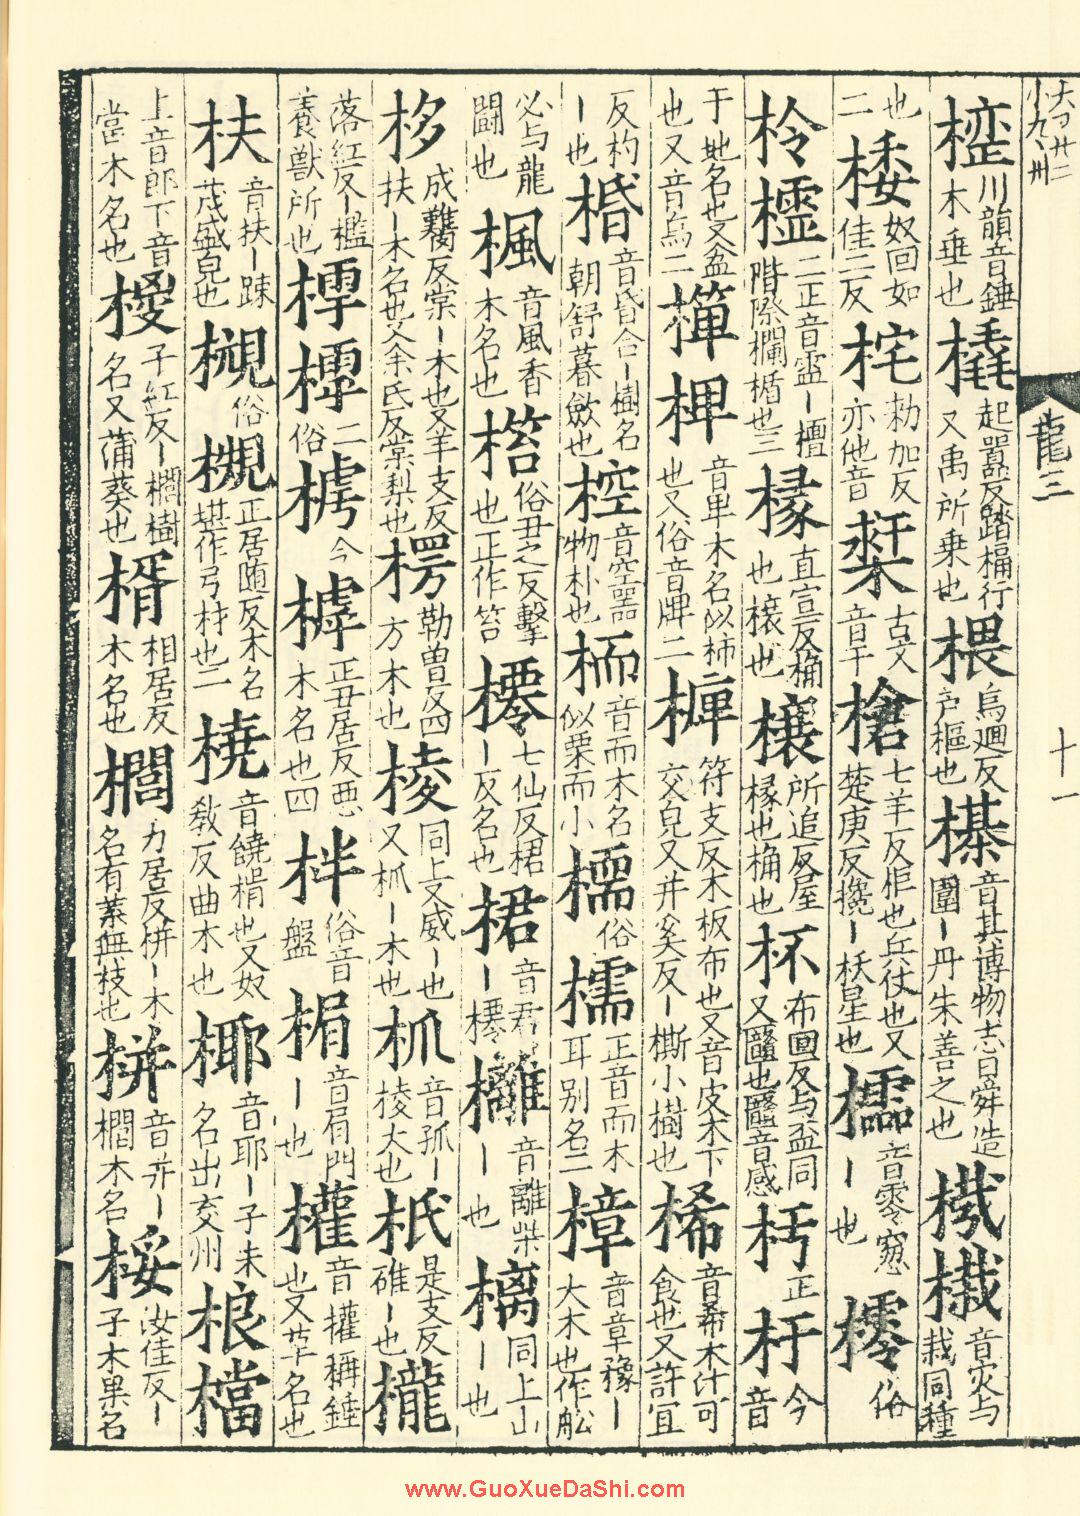 大丁廿二
小九、卅
龍三
十一
川韻音錘木垂也橇起嚣反踏橇行又禹所乗也椳烏廻反户樞也櫀音其博物志曰舜造圍丨丹朱善之也音灾与栽同種
也二奴回如佳二反㭐勑加反亦他音古文音干槍七羊反柜也兵仗也又楚庚反攙丨妖星也櫺音零窓丨也俗
柃櫺二正音靈丨檀階際欄楯也三椽直宣反桷也榱也榱所追反屋椽也桷也杯布回反与盃同又也音感杇正杅今音
于地名也又盆也又音烏二椑音卑木名似柿也又俗音牌二符支反木板布也又音皮木下交皃又井奚反丨㯕小樹也桸音希木汁可食也又許宜
反杓丨也音昏合丨樹名朝舒暮斂也椌音空器物朴也栭音而木名似栗而小俗檽正音而木耳别名二樟音章豫丨大木也作舩
必与龍闘也楓音風香木名也俗丑之反擊也正作笞櫏七仙反桾丨反名也桾音君丨櫏音離柴丨也樆同上山丨也
栘成臡反棠丨木也又羊支反扶丨木名也又余氏反棠梨也楞勒曾反四方木也棱同上又威丨也又柧丨木也柧音孤丨棱大也是支反碓丨也櫳
落紅反丨檻養獸所也二俗今樗正丑居反惡木名也四柈俗音盤音肩門丨也權音權稱錘也又草名也
扶音扶丨踈茂盛皃也俗槻正居随反木名堪作弓材也二橈音饒楫也又奴教反曲木也椰音耶丨子木名出交州桹檔
上音郎下音當木名也椶子紅反丨櫚樹名又蒲葵也楈相居反木名也櫚力居反栟丨木名有葉無枝也栟音并丨櫚木名桵汝佳反丨子木果名
www.GuoXueDaShi.com